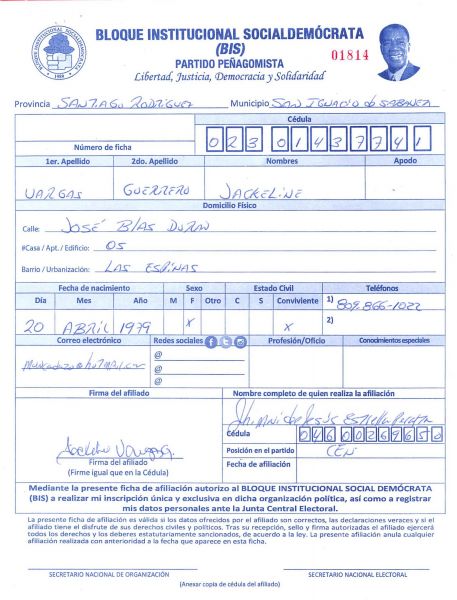 BLOQUE INSTITUCIONAL SOCIALDEMÓCRATA
(BIS)
PARTIDO PEÑAGOMISTA
01814
Libertad, Justicia, Democracia y Solidaridad
BLOQUE INSTITUCIONAL SOCIALDEMÓCRATA
Provincia SANTIAGO RODRÍGUEZ Municipio SAN IGNACIO de SABANETA
Cédula
Número de ficha 023 0143774 1
1er. Apellido 2do. Apellido Nombres Apodo
VARGAS GUERRERO JACKELINE
Domicilio Físico
Calle: JOSÉ BLAS DURAN
#Casa / Apt. / Edificio: 05
Barrio / Urbanización: LAS ESPINAS
Fecha de nacimiento Sexo Estado Civil Teléfonos
Día Mes Año M F Otro C S Conviviente 1) 809-866-1022
20 ABRIL 1979 X X 2)
Correo electrónico Redes sociales Profesión/Oficio Conocimientos especiales
@
@
@
Firma del afiliado Nombre completo de quien realiza la afiliación
de Jesús Estrella
Cédula 046 0026965 0
Posición en el partido CEN
Fecha de afiliación
Firma del afiliado
(Firme igual que en la Cédula)
Mediante la presente ficha de afiliación autorizo al BLOQUE INSTITUCIONAL SOCIAL DEMÓCRATA
(BIS) a realizar mi inscripción única y exclusiva en dicha organización política, así como a registrar
mis datos personales ante la Junta Central Electoral.
La presente ficha de afiliación es válida si los datos ofrecidos por el afiliado son correctos, las declaraciones veraces y si el
afiliado tiene el disfrute de sus derechos civiles y políticos. Tras su recepción, sello y firma autorizada el afiliado ejercerá
todos los derechos y los deberes estatutariamente sancionados, de acuerdo a la ley. La presente afiliación anula cualquier
afiliación realizada con anterioridad a la fecha que aparece en esta ficha.
SECRETARIO NACIONAL DE ORGANIZACIÓN SECRETARIO NACIONAL ELECTORAL
(Anexar copia de cédula del afiliado)